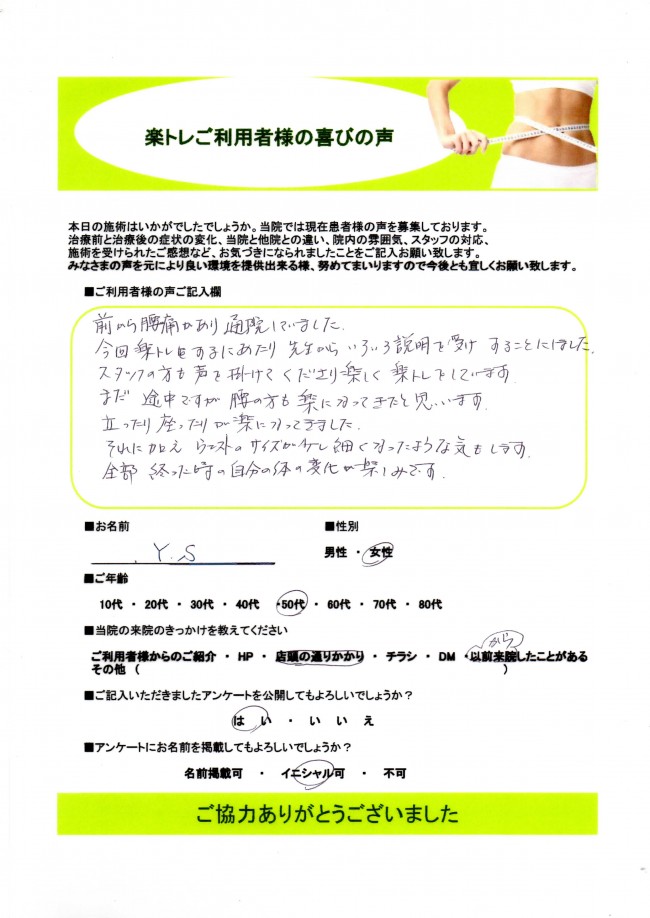 楽トレご利用者様の喜びの声
本日の施術はいかがでしたでしょうか。当院では現在患者様の声を募集しております。
治療前と治療後の症状の変化、当院と他院との違い、院内の雰囲気、スタッフの対応、
施術を受けられたご感想など、お気づきになられましたことをご記入お願い致します。
みなさまの声を元により良い環境を提供出来る様、努めてまいりますので今後とも宜しくお願い致します。
■ご利用者様の声ご記入欄
前から腰痛があり通院していました.
今回楽トレをするにあたり先生からいろいろ説明を受けすることにしました.
スタッフの方も声を掛けてくださり楽しく楽トレをしています.
まだ途中ですが腰の方も楽になってきたと思います.
立ったり座ったりが楽になってきました.
それに加え ウエストのサイズが少し細くなったような気もします.
全部終った時の自分の体の変化が楽しみです.
■お名前 ■性別
Y.S 男性 ・ 女性
■ご年齢
10代 ・ 20代 ・ 30代 ・ 40代 ・ 50代 ・ 60代 ・ 70代 ・ 80代
■当院の来院のきっかけを教えてください
から
ご利用者様からのご紹介 ・ HP ・ 店頭の通りかかり ・ チラシ ・ DM ・ 以前来院したことがある
その他 （ ）
■ご記入いただきましたアンケートを公開してもよろしいでしょうか？
は い ・ い い え
■アンケートにお名前を掲載してもよろしいでしょうか？
名前掲載可 ・ イニシャル可 ・ 不可
ご協力ありがとうございました